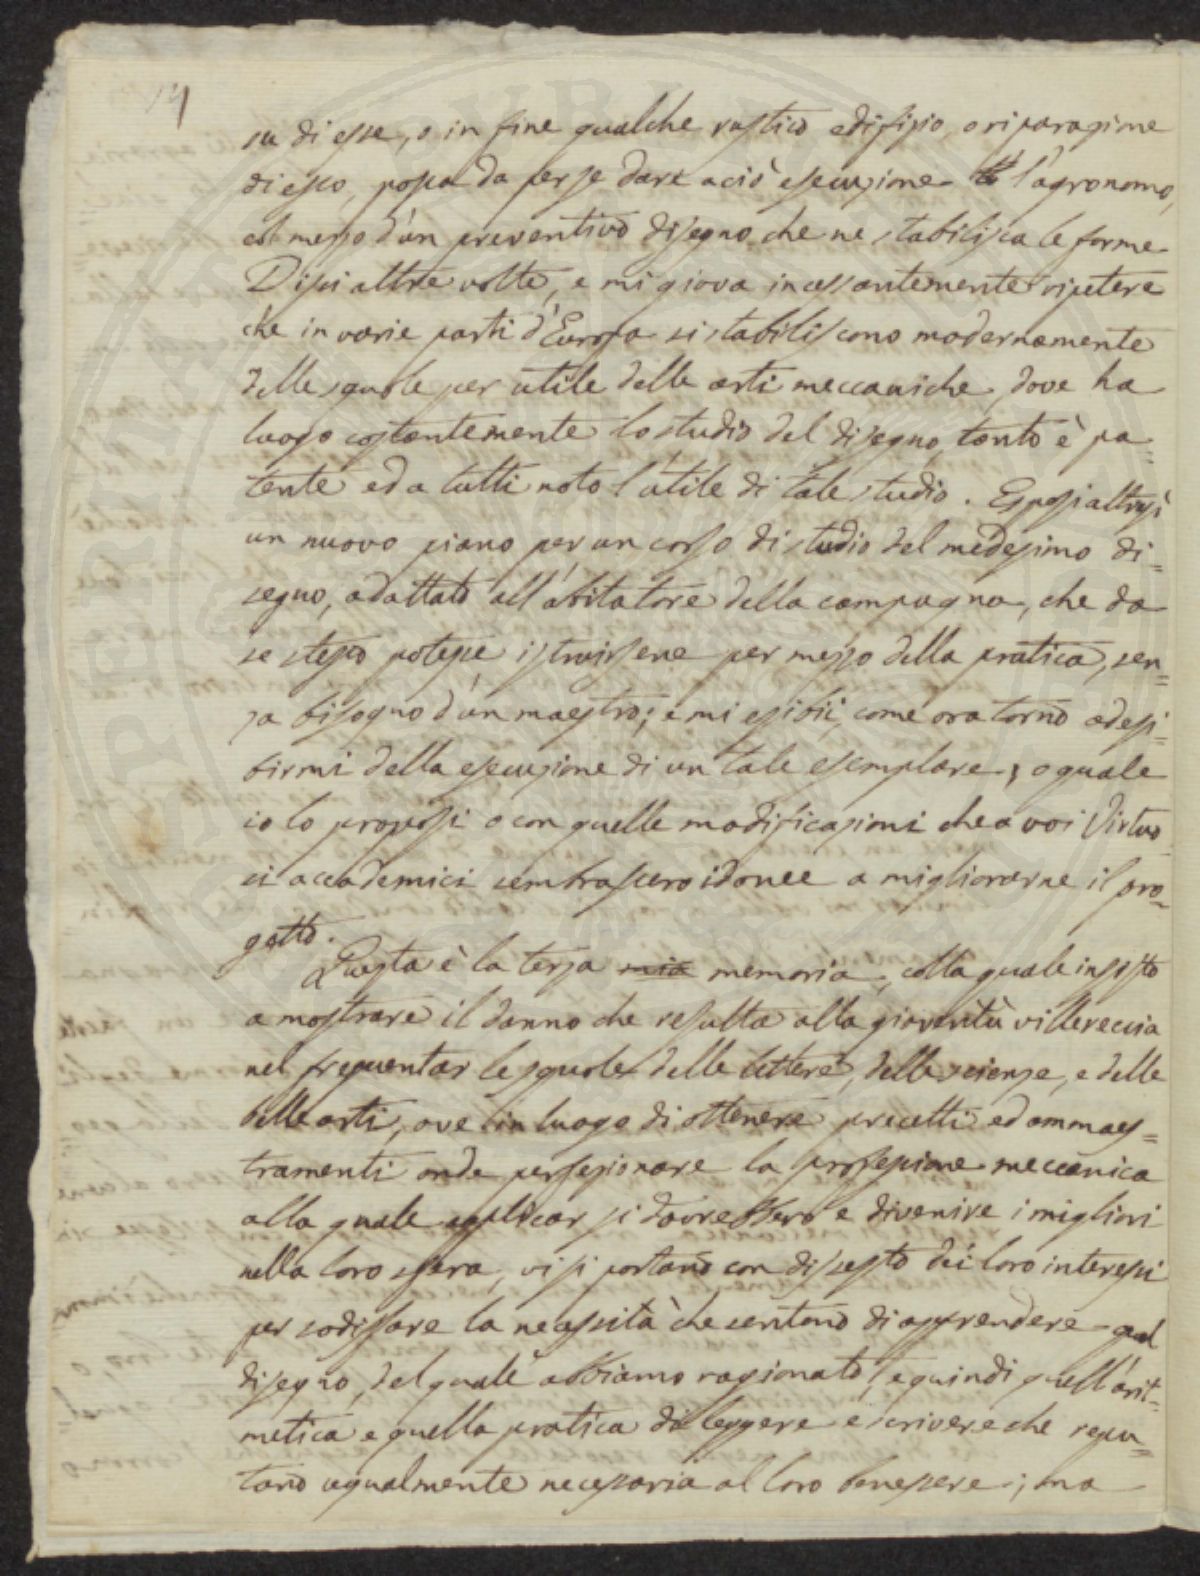 14
su di esse, o in fine qualche rustico edifizio, o riparazione
di esso, possa da per se dare a ciò esecuzione l'agronomo,
col mezzo d'un preventivo disegno che ne stabilisca le forme
Dissi altre volte, e mi giova incessantemente ripetere
che in varie parti d'Europa si stabiliscono modernamente
delle squole per utile delle arti meccaniche dove ha
luogo costantemente lo studio del disegno, tanto è pa=
tente ed a tutti noto l'utile di tale studio. Esposi altresì
un nuovo piano per un corso di studio del medesimo di=
segno, adattato all'abitatore della campagna, che da
se stesso potesse istruirsene per mezzo della pratica, sen=
za bisogno d'un maestro; e mi esibii, come ora torno ad esi=
birmi della esecuzione di un tale esemplare, o quale
io lo proposi o con quelle modificazioni che a voi Virtuo
si accademici sembrassero idonee a migliorarne il pro=
getto.
Questa è la terza mia memoria, colla quale insisto
a mostrare il danno che resulta alla gioventù villereccia
nel frequentar le squole delle lettere, delle scienze, e delle
belle arti, ove in luogo di ottenere precetti ed ammaes=
tramenti onde perfezionare la professione meccanica
alla quale applicar si dovrebbero e divenire i migliori
nella loro sfera, vi si portano con disesto dei loro interessi
per sodisfare la necessità che sentono di apprendere quel
disegno, del quale abbiamo ragionato, e quindi quell'arit=
metica e quella pratica di leggere e scrivere che repu=
tano ugualmente necessaria al loro benessere; ma